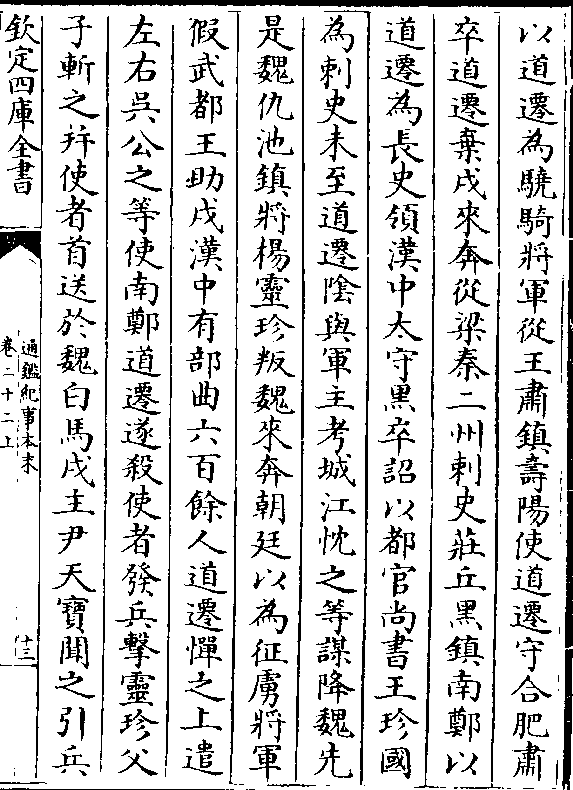 以道遷為驍騎將軍從王肅鎮壽陽使道遷守合肥肅
卒道遷棄戍來奔從梁秦二州刺史莊丘黑鎮南鄭以
道遷為長史領漢中太守黑卒詔以都官尚書王珍國
為刺史未至道遷陰與軍主考城江忱之等謀降魏先
是魏仇池鎮將楊靈珍叛魏來奔朝廷以為征虜將軍
假武都王助戍漢中有部曲六百餘人道遷憚之上遣
左右吳公之等使南鄭道遷遂殺使者發兵擊靈珍父
子斬之并使者首送於魏白馬戍主尹天寶聞之引兵
欽定四庫全書
通鑑紀事本末
卷二十二上
十三